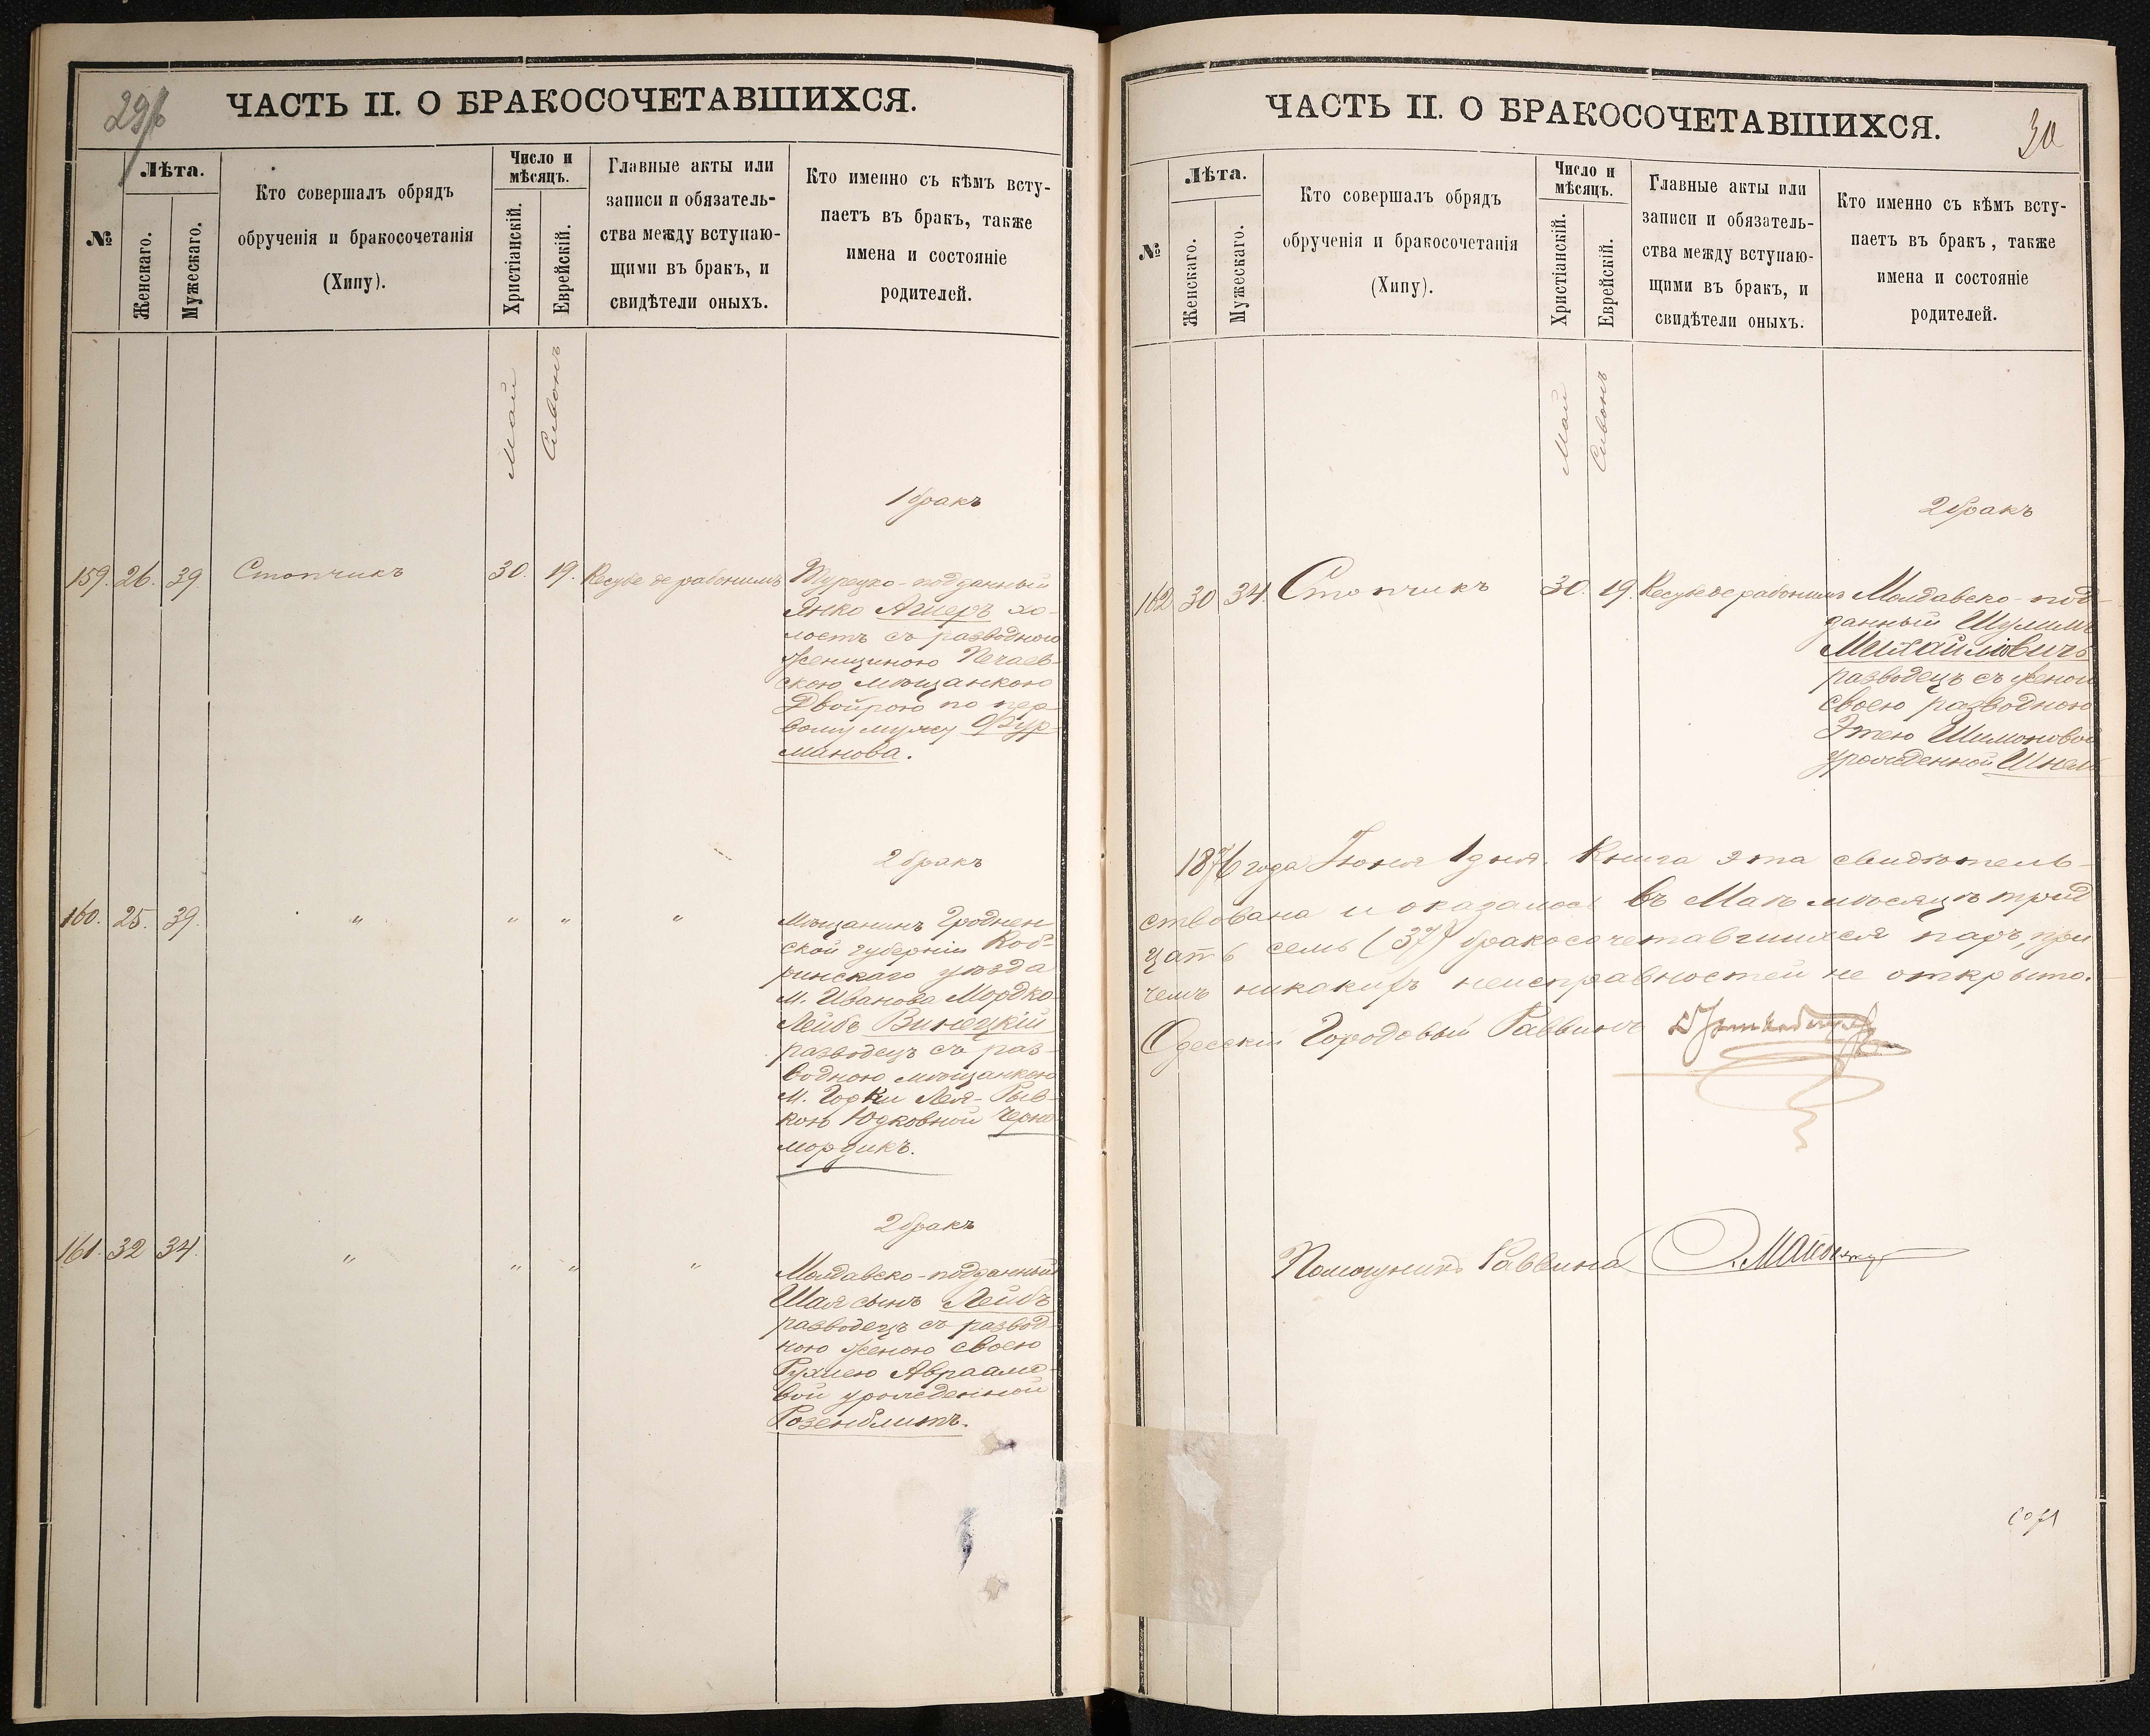 29
ЧАСТЬ II. О БРАКОСОЧЕТАВШИХСЯ.
№
Лѣта.
Женскаго.
Мужескаго.
Кто совершалъ обрядъ
обрученія и бракосочетанія
(Хипу).
Число и
мѣсяцъ.
Христіанскій.
Еврейскій.
Главные акты или
записи и обязатель-
ства между вступаю-
щими въ бракъ, и
свидѣтели оныхъ.
Кто именно съ кѣмъ всту-
паетъ въ бракъ, также
имена и состояніе
родителей.
Май
Сивонъ
1 бракъ
159. 26. 39. Стопчикъ 30. 19. Кесубе де рабонимъ Турецко-подданный
Янко Ашеръ хо-
лостъ съ разводною
женщиною Печаев-
скою мѣщанкою
Двойрою по пер-
вому мужу Фур-
манова.
2 бракъ
160. 25. 39. " " " " Мѣщанинъ Гроднен
ской губерніи Коб-
ринскаго уѣзда
м. Иванова Мордко
Лейбъ Винецкій
разводецъ съ раз-
водною мѣщанкою
м. Горки Лея-Рыв-
кою Юдковной Черно
мордикъ.
2 бракъ
161. 32 34. " " " " Молдавско-подданный
Шая сынъ Лейбъ
разводецъ съ развод
ною женою своею
Рухлею Авраамо-
вой урожденной
Розенблитъ.
30
ЧАСТЬ II. О БРАКОСОЧЕТАВШИХСЯ.
№
Лѣта.
Женскаго.
Мужескаго.
Кто совершалъ обрядъ
обрученія и бракосочетанія
(Хипу).
Число и
мѣсяцъ.
Христіанскій.
Еврейскій.
Главные акты или
записи и обязатель-
ства между вступаю-
щими въ бракъ, и
свидѣтели оныхъ.
Кто именно съ кѣмъ всту-
паетъ въ бракъ, также
имена и состояніе
родителей.
Май
Сивонъ
2 бракъ
162 30 34. Стопчикъ 30. 19. Кесубе де рабонимъ Молдавско-под
данный Шулимъ
Михайловичъ
разводецъ съ женой
своею разводною
Этею Шимоновой
урожденной
1876 года Іюня 1 дня. Книга эта свидѣтель-
ствована и оказалось въ Маѣ мѣсяцѣ трид
цать семь (37) бракосочетавшихся паръ, при
чемъ никакихъ неисправностей не открыто.
Одесскій Городовый Раввинъ
Помощникъ Раввина